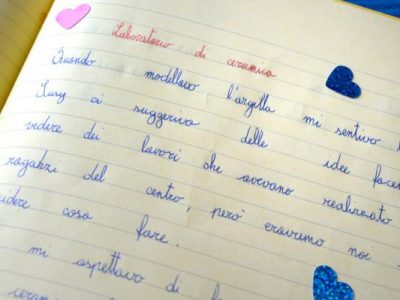 Laboratorio di ceramica
Quando modellavo l'argilla mi sentivo
Susy ci suggeriva delle idee facen
vedere dei lavori che avevano realizzato
ragazzi del centro, però eravamo noi
idere cosa fare.
mi aspettavo di f